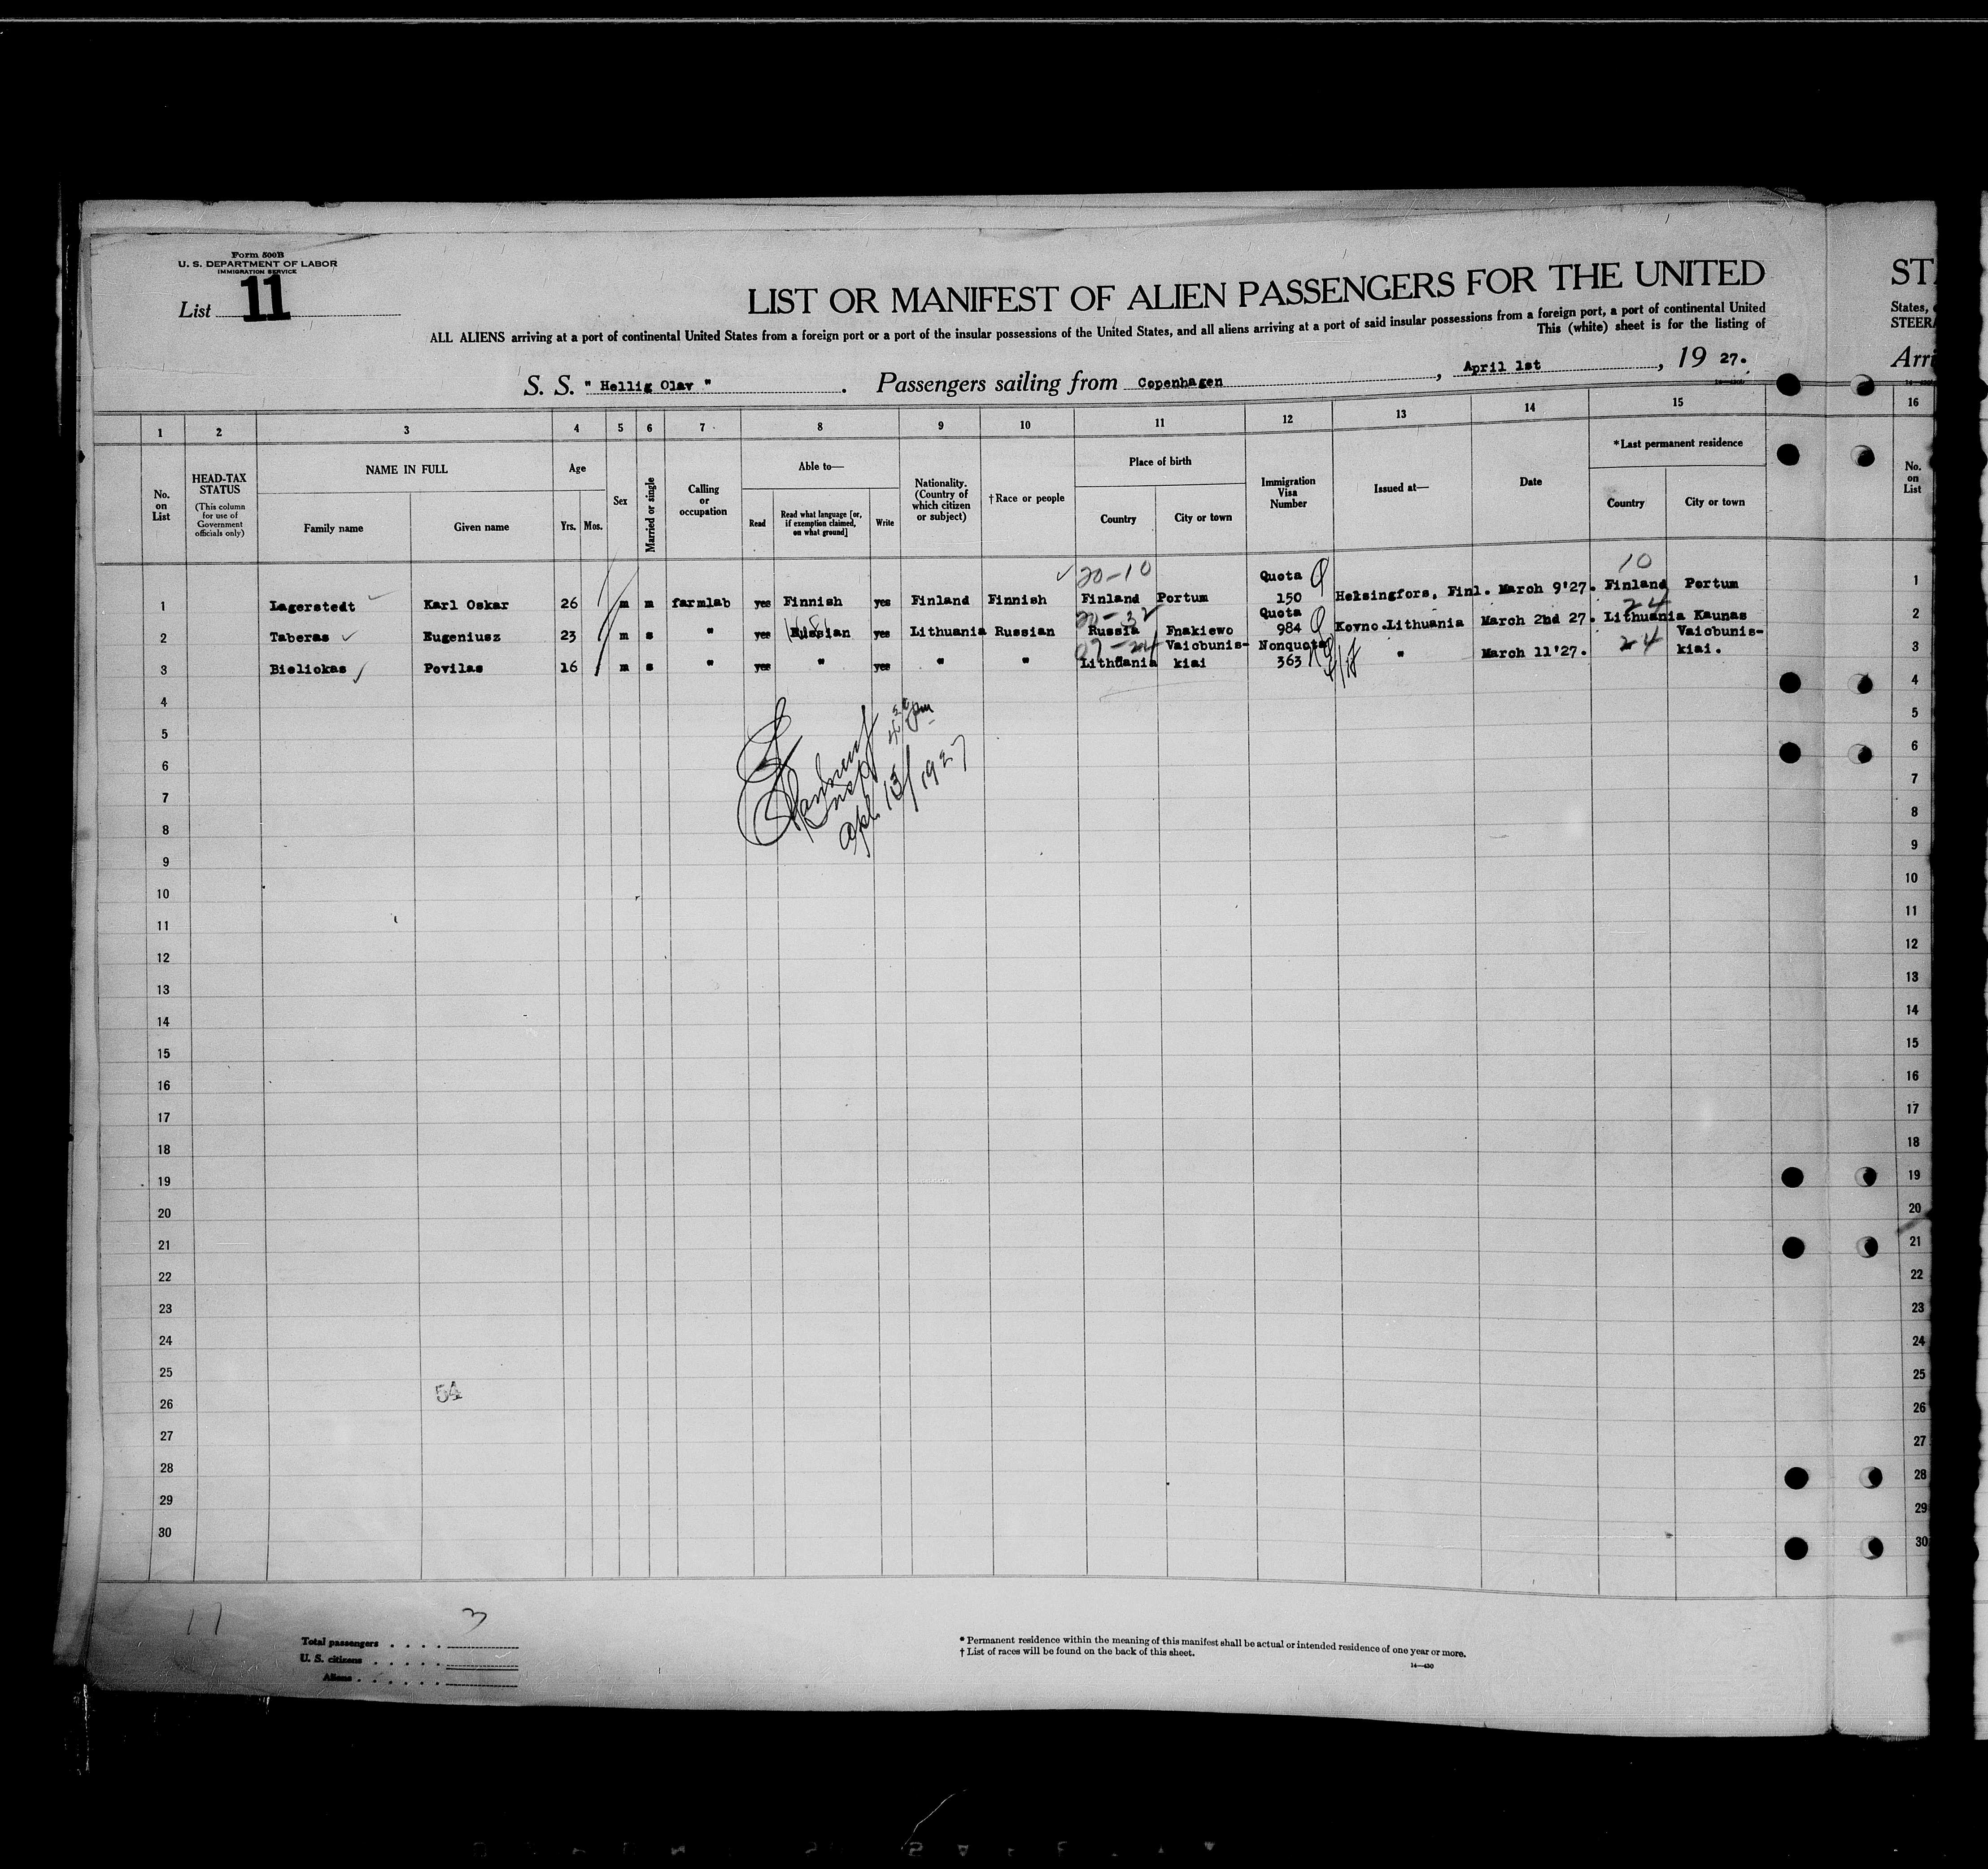 Form 500B
U. S. DEPARTMENT OF LABOR
IMMIGRATION SERVICE
List 11
LIST OR MANIFEST OF ALIEN PASSENGERS FOR THE UNITED
ALL ALIENS arriving at a port of continental United States from a foreign port or a port of the insular possessions of the United States, and all aliens arriving at a port of said insular possessions from a foreign port, a port of continental United
This (white) sheet is for the listing of
S. S. " Hellig Olav " . Passengers sailing from Copenhagen , April 1st , 19 27.
ST
States,
STEER
Arri
1 2 3 4 5 6 7 8 9 10 11 12 13 14 15 16
No. on List
HEAD-TAX STATUS
(This column for use of Government officials only)
NAME IN FULL
Family name Given name
Age
Yrs. Mos.
Sex
Married or single
Calling or occupation
Able to—
Read
Read what language [or, if exemption claimed, on what ground]
Write
Nationality. (Country of which citizen or subject)
† Race or people
Place of birth
Country City or town
Immigration Visa Number
Issued at—
Date
*Last permanent residence
Country City or town
No. on List
20-10 Quota 10
1 Lagerstedt Karl Oskar 26 m m farmlab yes Finnish yes Finland Finnish Finland Portum 150 Helsingfors, Finl. March 9'27. Finland Portum 1
20-32 Quota 24
2 Taberas Eugeniusz 23 m s " yes Russian yes Lithuania Russian Russia Fnakiewo 984 Kovno.Lithuania March 2nd 27. Lithuania Kaunas 2
Vaiobunis- Nonquota 24 Vaiobunis-
3 Bieliokas Povilas 16 m s " yes " yes " " Lithuania kiai 363 " March 11'27. kiai. 3
4 4
5 5
6 6
7 7
8 8
9 9
10 10
11 11
12 12
13 13
14 14
15 15
16 16
17 17
18 18
19 19
20 20
21 21
22 22
23 23
24 24
25 25
26 26
27 27
28 28
29 29
30 30
Insp
Apl. 13/1927
54
17
3
Total passengers
U. S. citizens
Aliens
* Permanent residence within the meaning of this manifest shall be actual or intended residence of one year or more.
† List of races will be found on the back of this sheet.
14—430